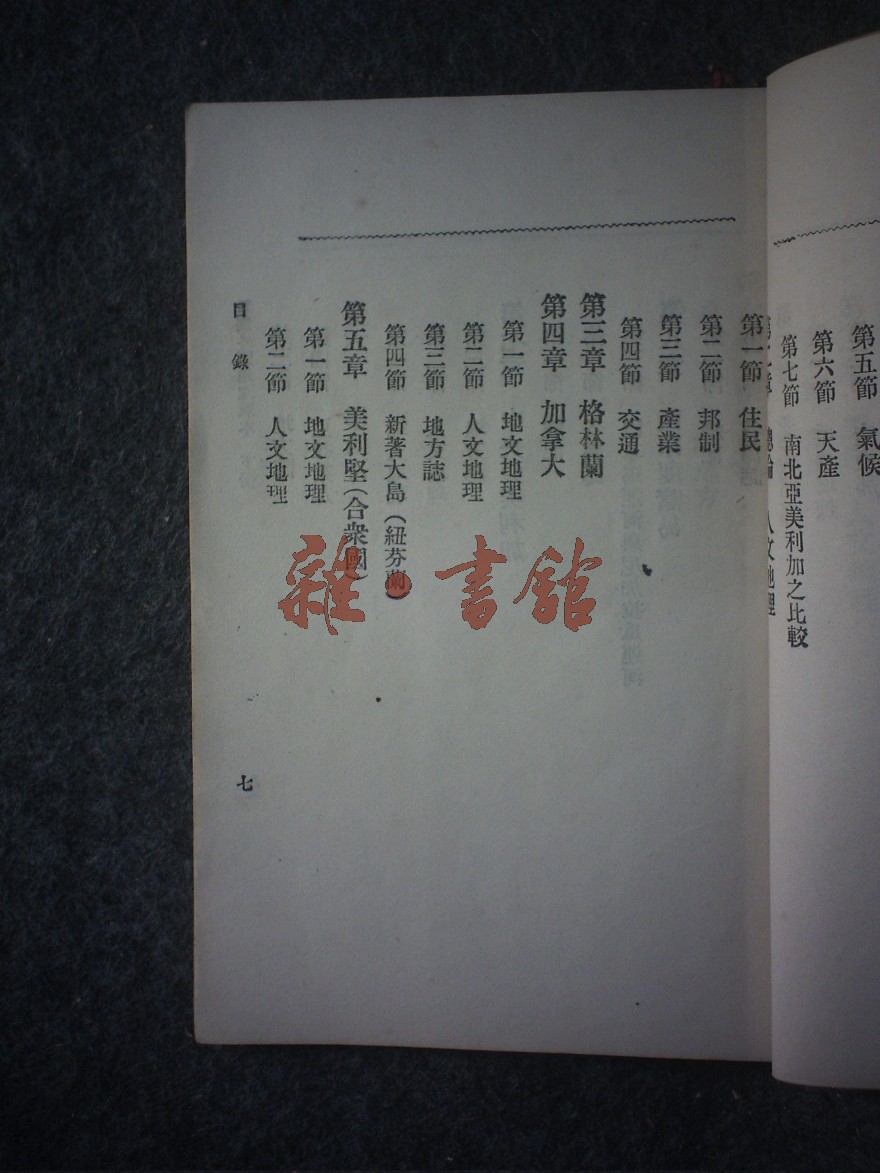 第五節　氣候
第六節　天產
第七節　南北亞美利加之比較
第二章　總論　人文地理
第一節　住民
第二節　邦制
第三節　產業
第四節　交通
第三章　格林蘭
第四章　加拿大
第一節　地文地理
第二節　人文地理
第三節　地方誌
第四節　新著大島（紐芬蘭）
第五章　美利堅（合衆國）
第一節　地文地理
第二節　人文地理
目錄
七
雜·書館